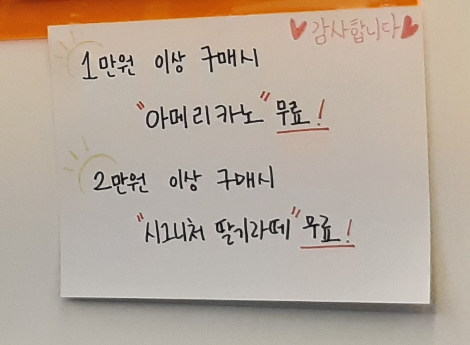 ♥감사합니다♥
1만원 이상 구매시
"아메리카노" 무료!
2만원 이상 구매시
"시그니처 딸기라떼" 무료!